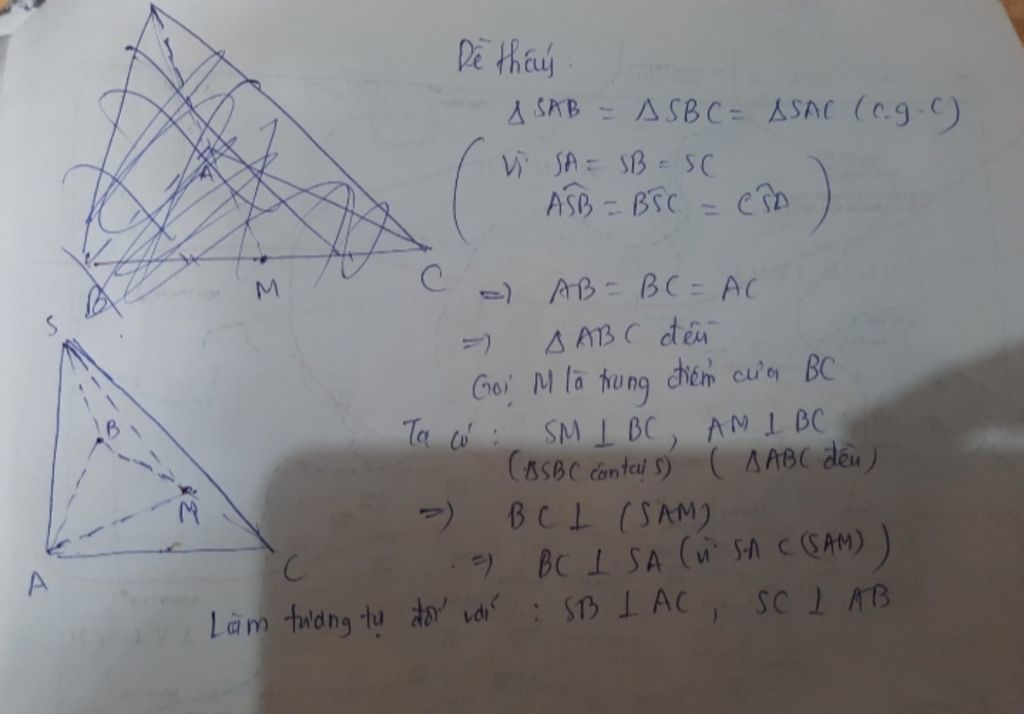 Dễ thấy:
Δ SAB = Δ SBC = Δ SAC (c.g.c)
Vì SA = SB = SC
ASB = BSC = CSA
=> AB = BC = AC
=> Δ ABC đều
Gọi M là trung điểm của BC
Ta có: SM ⊥ BC, AM ⊥ BC
(ΔSBC cân tại S) (ΔABC đều)
=> BC ⊥ (SAM)
=> BC ⊥ SA (vì SA ⊂ (SAM))
Làm tương tự đối với: SB ⊥ AC, SC ⊥ AB
A
B
M
C
S
B
M
A
C